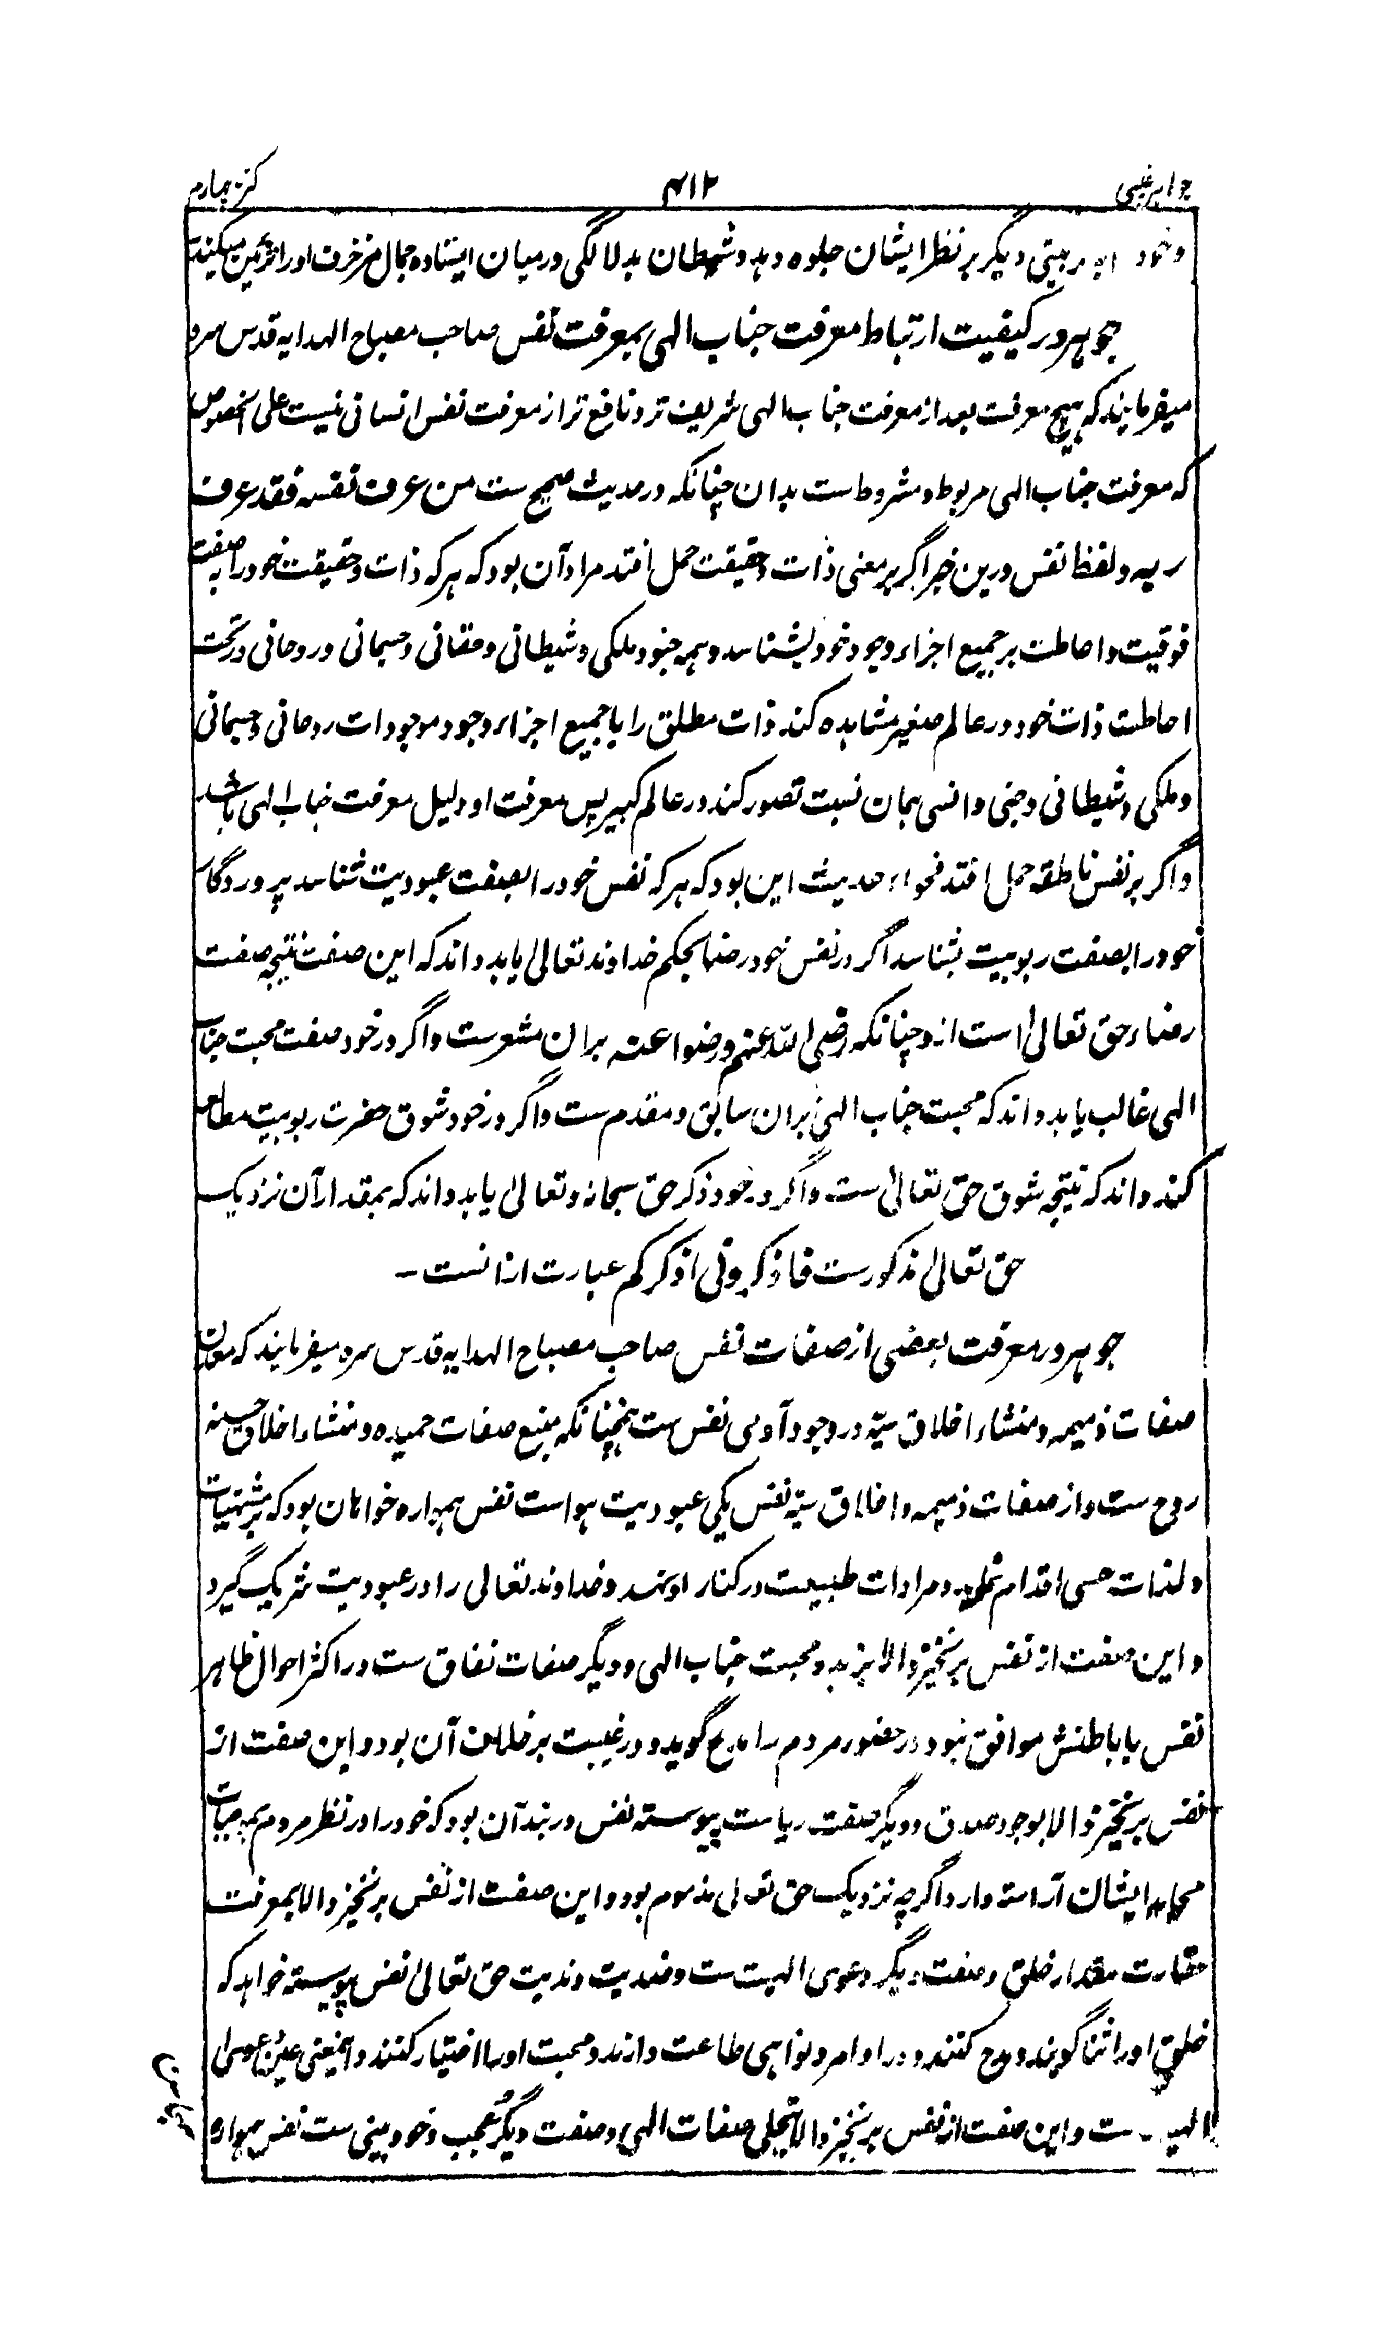 جواهر غیبی ۴۱۲ کنز چهارم
وخود دیگر بر نظر ایشان جلوه دهد و شیطان بدلالگی درمیان ایستاده جمال مزخرف او را تزئین میکند
جوهر در کیفیت ارتباط معرفت جناب الهی بمعرفت نفس صاحب مصباح الهدایه قدس سره
میفرمایند که هیچ معرفت بعد از معرفت جناب الهی شریف تر و نافع تر از معرفت نفس انسانی نیست علی الخصوص
که معرفت جناب الهی مربوط و مشروط است بدان چنانکه در حدیث صحیح ست من عرف نفسه فقد عرف
ربه و لفظ نفس درین خبر اگر بر معنی ذات و حقیقت حمل افتد مراد آن بود که هر که ذات و حقیقت خود را بصفت
فوقیت و احاطت بر جمیع اجزاء وجود خود بشناسد و همه جنود ملکی و شیطانی و حقانی و جسمانی و روحانی در تحت
احاطت ذات خود در عالم صغیر مشاهده کند ذات مطلق را با جمیع اجزاء وجود موجودات روحانی و جسمانی
و ملکی و شیطانی و جنی و انسی بهمان نسبت تصور کند در عالم کبیر پس معرفت او دلیل معرفت جناب الهی باشد
و اگر بر نفس ناطقه حمل افتد فحواء حدیث این بود که هر که نفس خود را بصفت عبودیت شناسد پروردگار
خود را بصفت ربوبیت بشناسد اگر در نفس خود رضا بحکم خداوند تعالی یابد داند که این صفت نتیجه صفت
رضاء حق تعالی است ازو چنانکه رضی الله عنهم و رضوا عنه بران مشعرست و اگر در خود صفت محبت جناب
الهی غالب یابد داند که محبت جناب الهی بران سابق و مقدم ست و اگر در خود شوق حضرت ربوبیت مطالعه
کند داند که نتیجه شوق حق تعالی ست و اگر در خود ذکر حق سبحانه و تعالی یابد داند که بمقدار آن نزدیک
حق تعالی مذکورست فاذکرونی اذکرکم عبارت ازانست –
جوهر در معرفت بعضی از صفات نفس صاحب مصباح الهدایه قدس سره میفرمایند که معدن
صفات ذمیمه و منشاء اخلاق سیّه در وجود آدمی نفس ست همچنانکه منبع صفات حمیده و منشاء اخلاق حسنه
روح ست و از صفات ذمیمه و اخلاق سیّه نفس یکی عبودیت هواست نفس همواره خواهان بود که بر مشتهیات
و لذات حسی اقدام نماید و مرادات طبیعت در کنار او نهد و خداوند تعالی را در عبودیت شریک گیرد
و این صفت از نفس برنخیزد الا بزهد و محبت جناب الهی و دیگر صفات نفاق ست در اکثر احوال ظاهر
نفس با باطنش موافق نبود در حضور مردم را مدح گوید و در غیبت بر خلاف آن بود و این صفت از
نفس برنخیزد الا بوجود صدق و دیگر صفت ریاست پیوسته نفس در بند آن بود که خود را در نظر مردم بموجبات
محامد ایشان آراسته دارد اگرچه نزدیک حق تعالی مذموم بود و این صفت از نفس برنخیزد الا بمعرفت
حقارت مقدار خلق و صفت دیگر دعوی الهیت ست و ضدیت و ندیت حق تعالی نفس پیوسته خواهد که
خلق او را ثنا گویند و مدح کنند و در اوامر و نواهی طاعت دارند و محبت او را اختیار کنند و اینمعنی عین دعوی
الهیت ست و این صفت از نفس برنخیزد الا بتجلی صفات الهی و صفت دیگر عجب و خودبینی ست نفس همواره